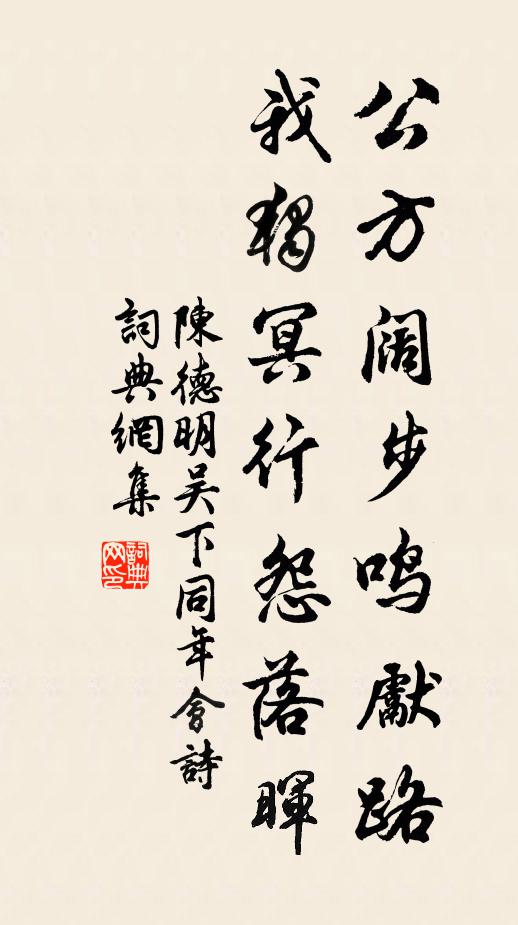 公方阔步鸣獻路
我獨冥行怨落暉
陳德明吴下同年會詩
詞典網集
詞典网印